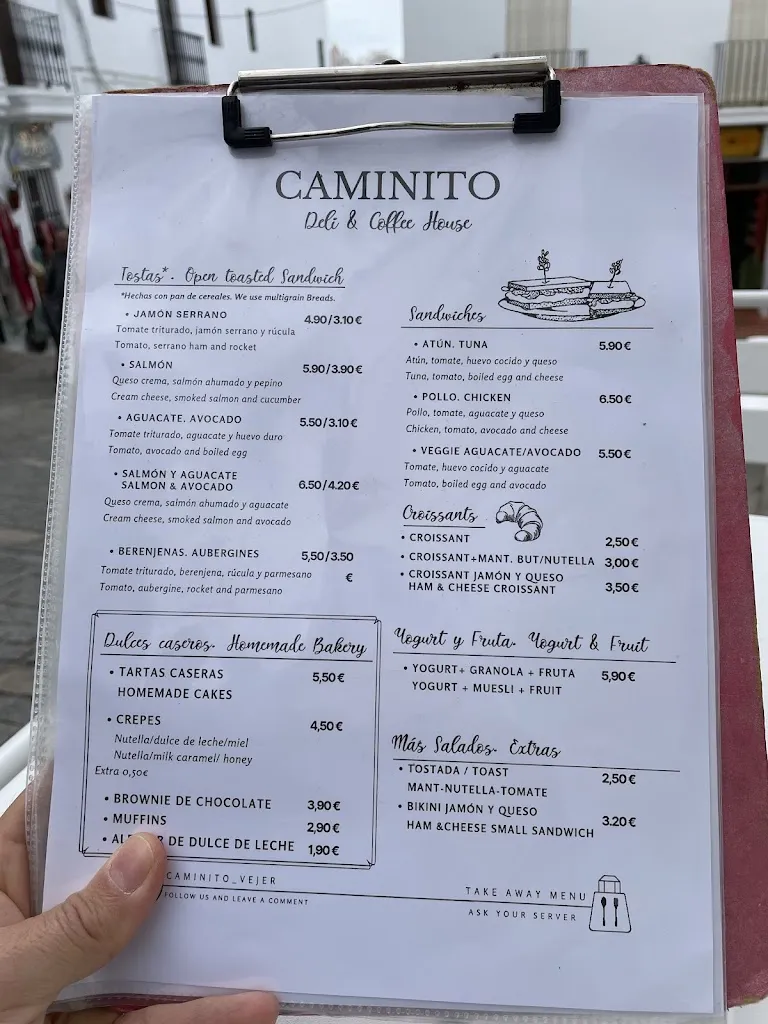 CAMINITO
Deli & Coffee House
Tostas*. Open toasted Sandwich
*Hechas con pan de cereales. We use multigrain Breads.
• JAMÓN SERRANO 4.90/3.10 €
Tomate triturado, jamón serrano y rúcula
Tomato, serrano ham and rocket
• SALMÓN 5.90/3.90 €
Queso crema, salmón ahumado y pepino
Cream cheese, smoked salmon and cucumber
• AGUACATE. AVOCADO 5.50/3.10 €
Tomate triturado, aguacate y huevo duro
Tomato, avocado and boiled egg
• SALMÓN Y AGUACATE
SALMON & AVOCADO 6.50/4.20 €
Queso crema, salmón ahumado y aguacate
Cream cheese, smoked salmon and avocado
• BERENJENAS. AUBERGINES 5,50/3.50
€
Tomate triturado, berenjena, rúcula y parmesano
Tomato, aubergine, rocket and parmesano
Dulces caseros. Homemade Bakery
• TARTAS CASERAS 5,50 €
HOMEMADE CAKES
• CREPES 4,50 €
Nutella/dulce de leche/miel
Nutella/milk caramel/ honey
Extra 0,50€
• BROWNIE DE CHOCOLATE 3,90 €
• MUFFINS 2,90 €
DE DULCE DE LECHE 1,90 €
Sandwiches
• ATÚN. TUNA 5.90 €
Atún, tomate, huevo cocido y queso
Tuna, tomato, boiled egg and cheese
• POLLO. CHICKEN 6.50 €
Pollo, tomate, aguacate y queso
Chicken, tomato, avocado and cheese
• VEGGIE AGUACATE/AVOCADO 5.50 €
Tomate, huevo cocido y aguacate
Tomato, boiled egg and avocado
Croissants
• CROISSANT 2,50 €
• CROISSANT+MANT. BUT/NUTELLA 3,00 €
• CROISSANT JAMÓN Y QUESO
HAM & CHEESE CROISSANT 3,50 €
Yogurt y Fruta. Yogurt & Fruit
• YOGURT+ GRANOLA + FRUTA 5,90 €
YOGURT + MUESLI + FRUIT
Más Salados. Extras
• TOSTADA / TOAST 2,50 €
MANT-NUTELLA-TOMATE
• BIKINI JAMÓN Y QUESO 3.20 €
HAM &CHEESE SMALL SANDWICH
CAMINITO_VEJER
FOLLOW US AND LEAVE A COMMENT
TAKE AWAY MENU
ASK YOUR SERVER